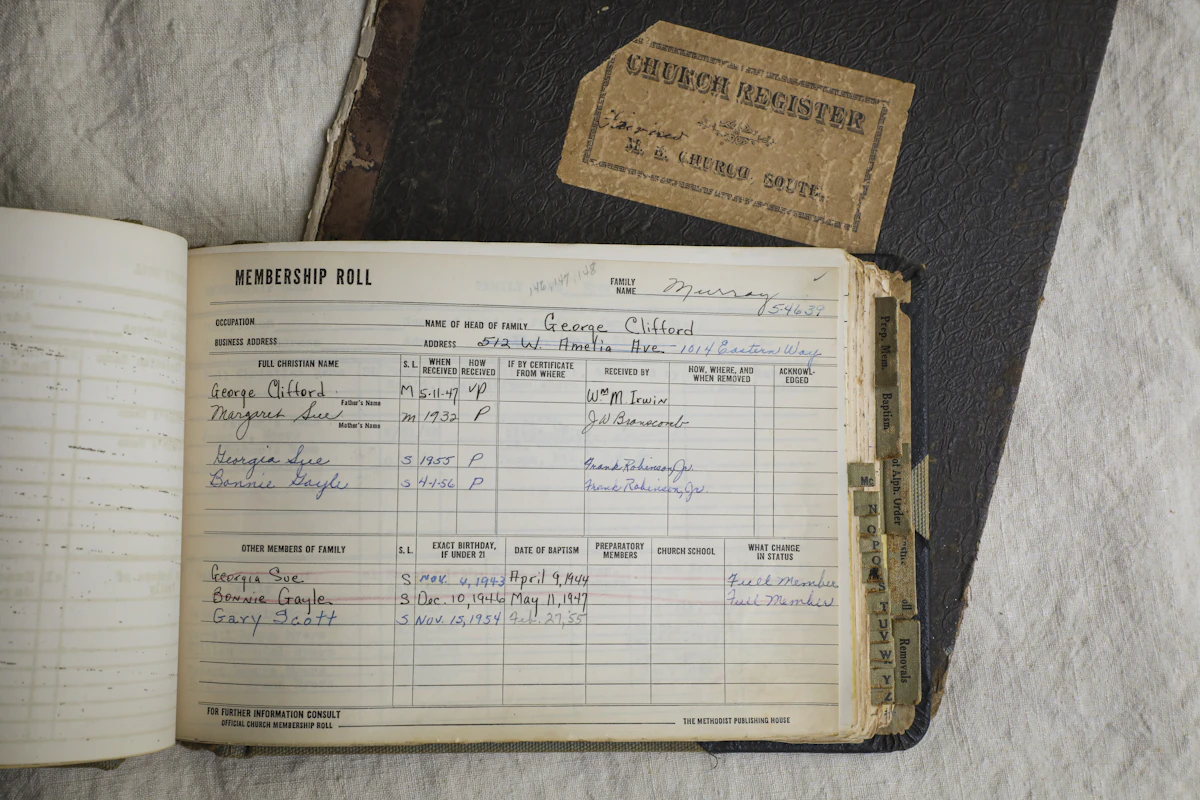 CHURCH REGISTER
M. E. CHURCH, SOUTH,
MEMBERSHIP ROLL
146, 147, 148
FAMILY NAME Murray
5-4639
OCCUPATION NAME OF HEAD OF FAMILY George Clifford
BUSINESS ADDRESS ADDRESS 512 W. Amelia Ave. - 1014 Eastern Way
FULL CHRISTIAN NAME S. L. WHEN RECEIVED HOW RECEIVED IF BY CERTIFICATE FROM WHERE RECEIVED BY HOW, WHERE, AND WHEN REMOVED ACKNOWL-EDGED
George Clifford M 5-11-47 VP Wm M. Irwin
Father's Name
Margaret Sue m 1932 P J W Branscomb
Mother's Name
Georgia Sue S 1955 P Frank Robinson, Jr.
Bonnie Gayle S 4-1-56 P Frank Robinson, Jr
OTHER MEMBERS OF FAMILY S. L. EXACT BIRTHDAY, IF UNDER 21 DATE OF BAPTISM PREPARATORY MEMBERS CHURCH SCHOOL WHAT CHANGE IN STATUS
Georgia Sue S Nov. 6, 1943 April 9, 1944 Full Member
Bonnie Gayle S Dec. 10, 1946 May 11, 1947 Full Member
Gary Scott S Nov. 15, 1954 Feb. 27, 55
FOR FURTHER INFORMATION CONSULT
OFFICIAL CHURCH MEMBERSHIP ROLL THE METHODIST PUBLISHING HOUSE
Prep. Mem.
Baptism
of Alph. Order
Removals
Mc
N
O
P
Q
S
T
U V
W
Y
Z